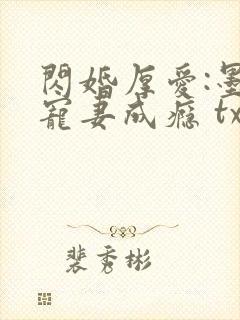 閃婚厚愛:墨
寵妻成癮 tx
裴秀彬